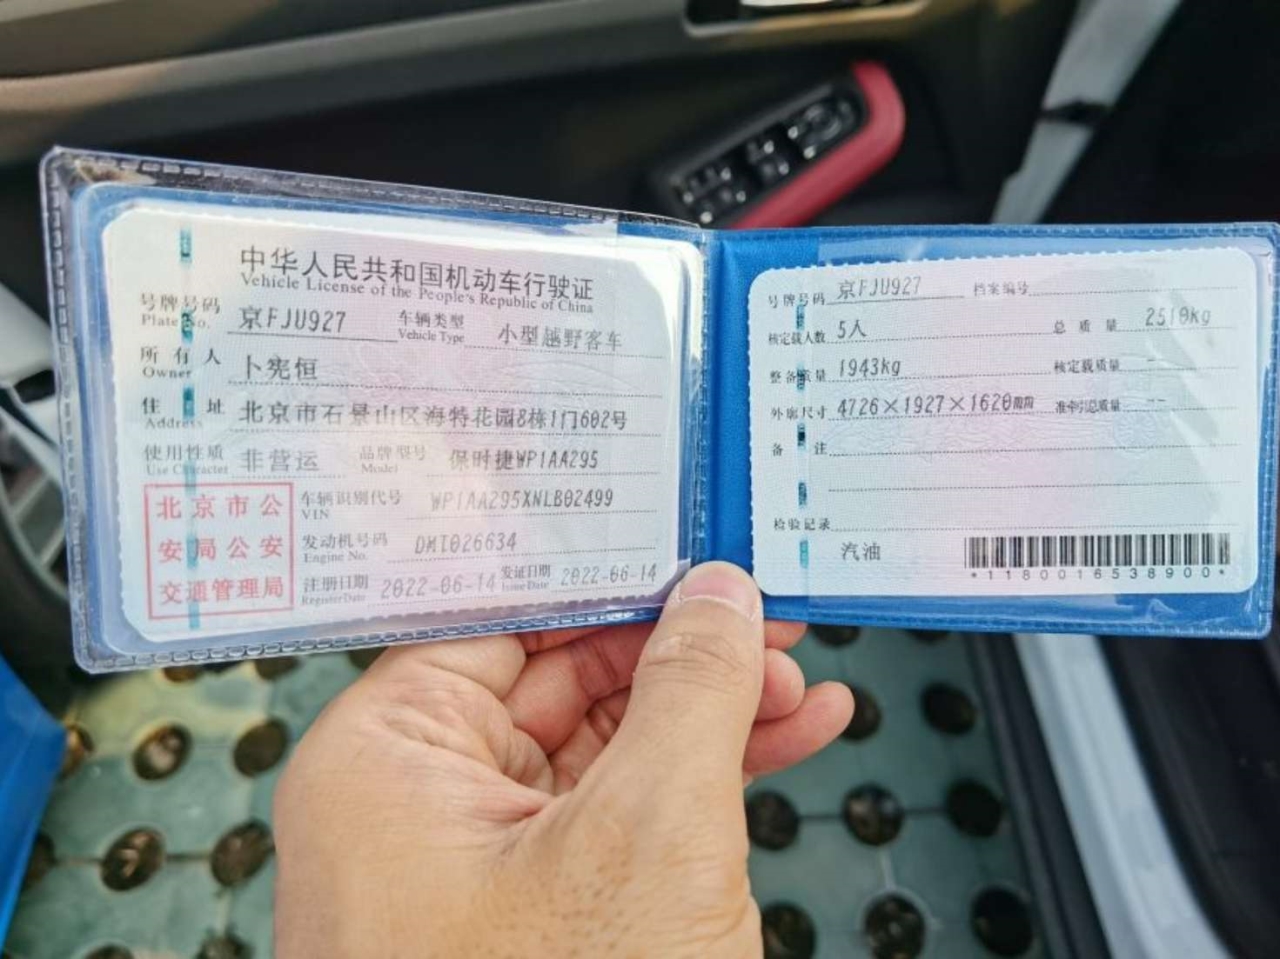 中华人民共和国机动车行驶证
Vehicle License of the People's Republic of China
号牌号码 京FJU927 车辆类型 小型越野客车
Plate No. Vehicle Type
所有人 卜宪恒
Owner
住址 北京市石景山区海特花园8栋1门602号
Address
使用性质 非营运 品牌型号 保时捷WP1AA295
Use Character Model
北京市公
安局公安
交通管理局
车辆识别代号 WP1AA295XNLB02499
VIN
发动机号码 DMT026634
Engine No.
注册日期 2022-06-14 发证日期 2022-06-14
Register Date Issue Date
号牌号码 京FJU927 档案编号
核定载人数 5人 总质量 2510kg
整备质量 1943kg 核定载质量 --
外廓尺寸 4726×1927×1620mm 准牵引总质量 --
备注
检验记录
汽油
*1180016538900*